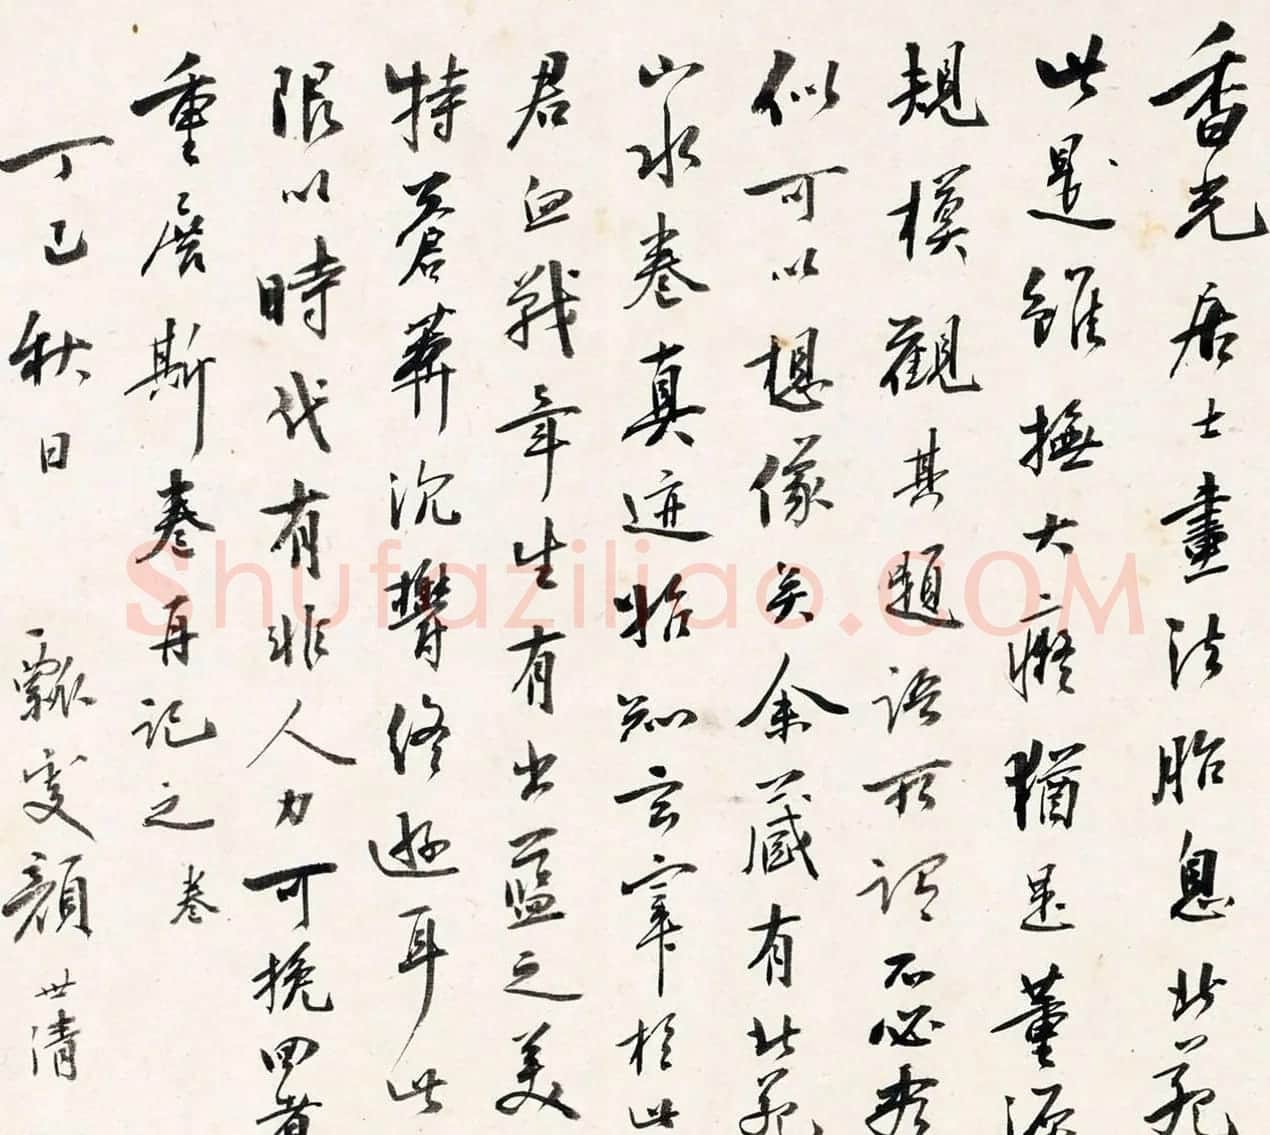 香光居士畫法胎息北苑
此是雖撫大癡猶是董源
規模觀其題語所謂不必盡
似可以想像矣余藏有北苑
山水卷真迹始知玄宰於此
君血戰半生有出藍之美
特蒼莽沉鬱終遜耳此
限以時代有非人力可挽回者
重展斯卷再記之 卷
丁巳秋日 瓢叟顏世清
Shufaziliao.COM